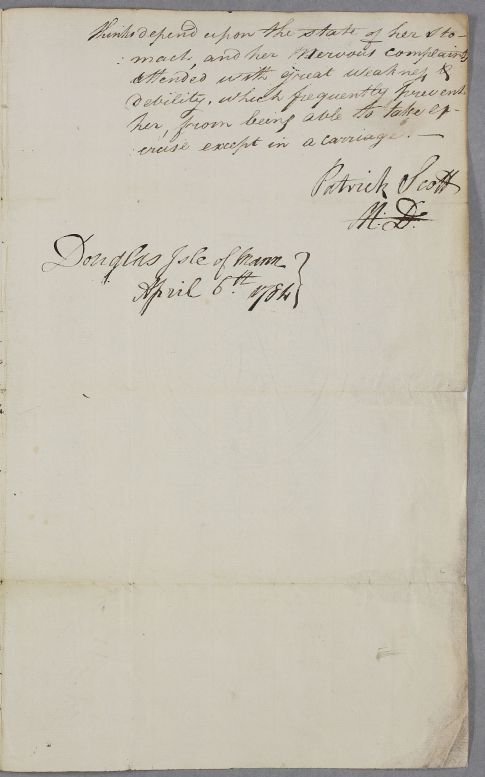 thinks depend upon the state of her sto-
:mach, and her Nervous complaints
attended with great weakness &
debility, which frequently prevent
her, from being able to take ex-
:ercise except in a carriage. —
Patrick Scott
M: D:
Douglas Isle of Mann
April 6th. 1784